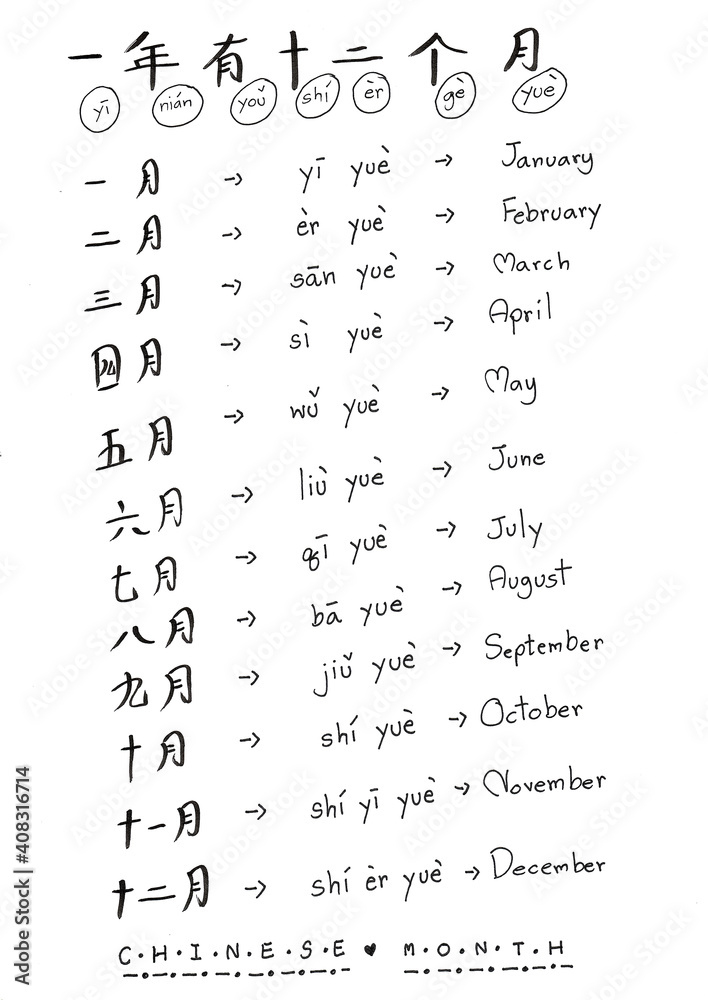 一年有十二个月
yī nián yoǔ shí èr gè yuè
一月 → yī yuè → January
二月 → èr yuè → February
三月 → sān yuè → March
四月 → sì yuè → April
五月 → wǔ yuè → May
六月 → liù yuè → June
七月 → qī yuè → July
八月 → bā yuè → August
九月 → jiǔ yuè → September
十月 → shí yuè → October
十一月 → shí yī yuè → November
十二月 → shí èr yuè → December
C·H·I·N·E·S·E ♥ M·O·N·T·H
Adobe Stock | #408316714